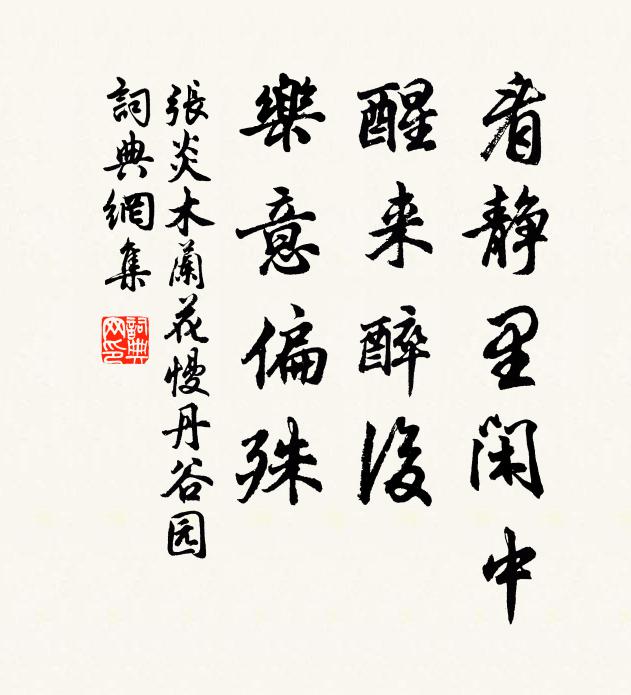 看静里闲中
醒来醉後
樂意偏殊
張炎木蘭花慢丹谷园
詞典網集
詞典网印